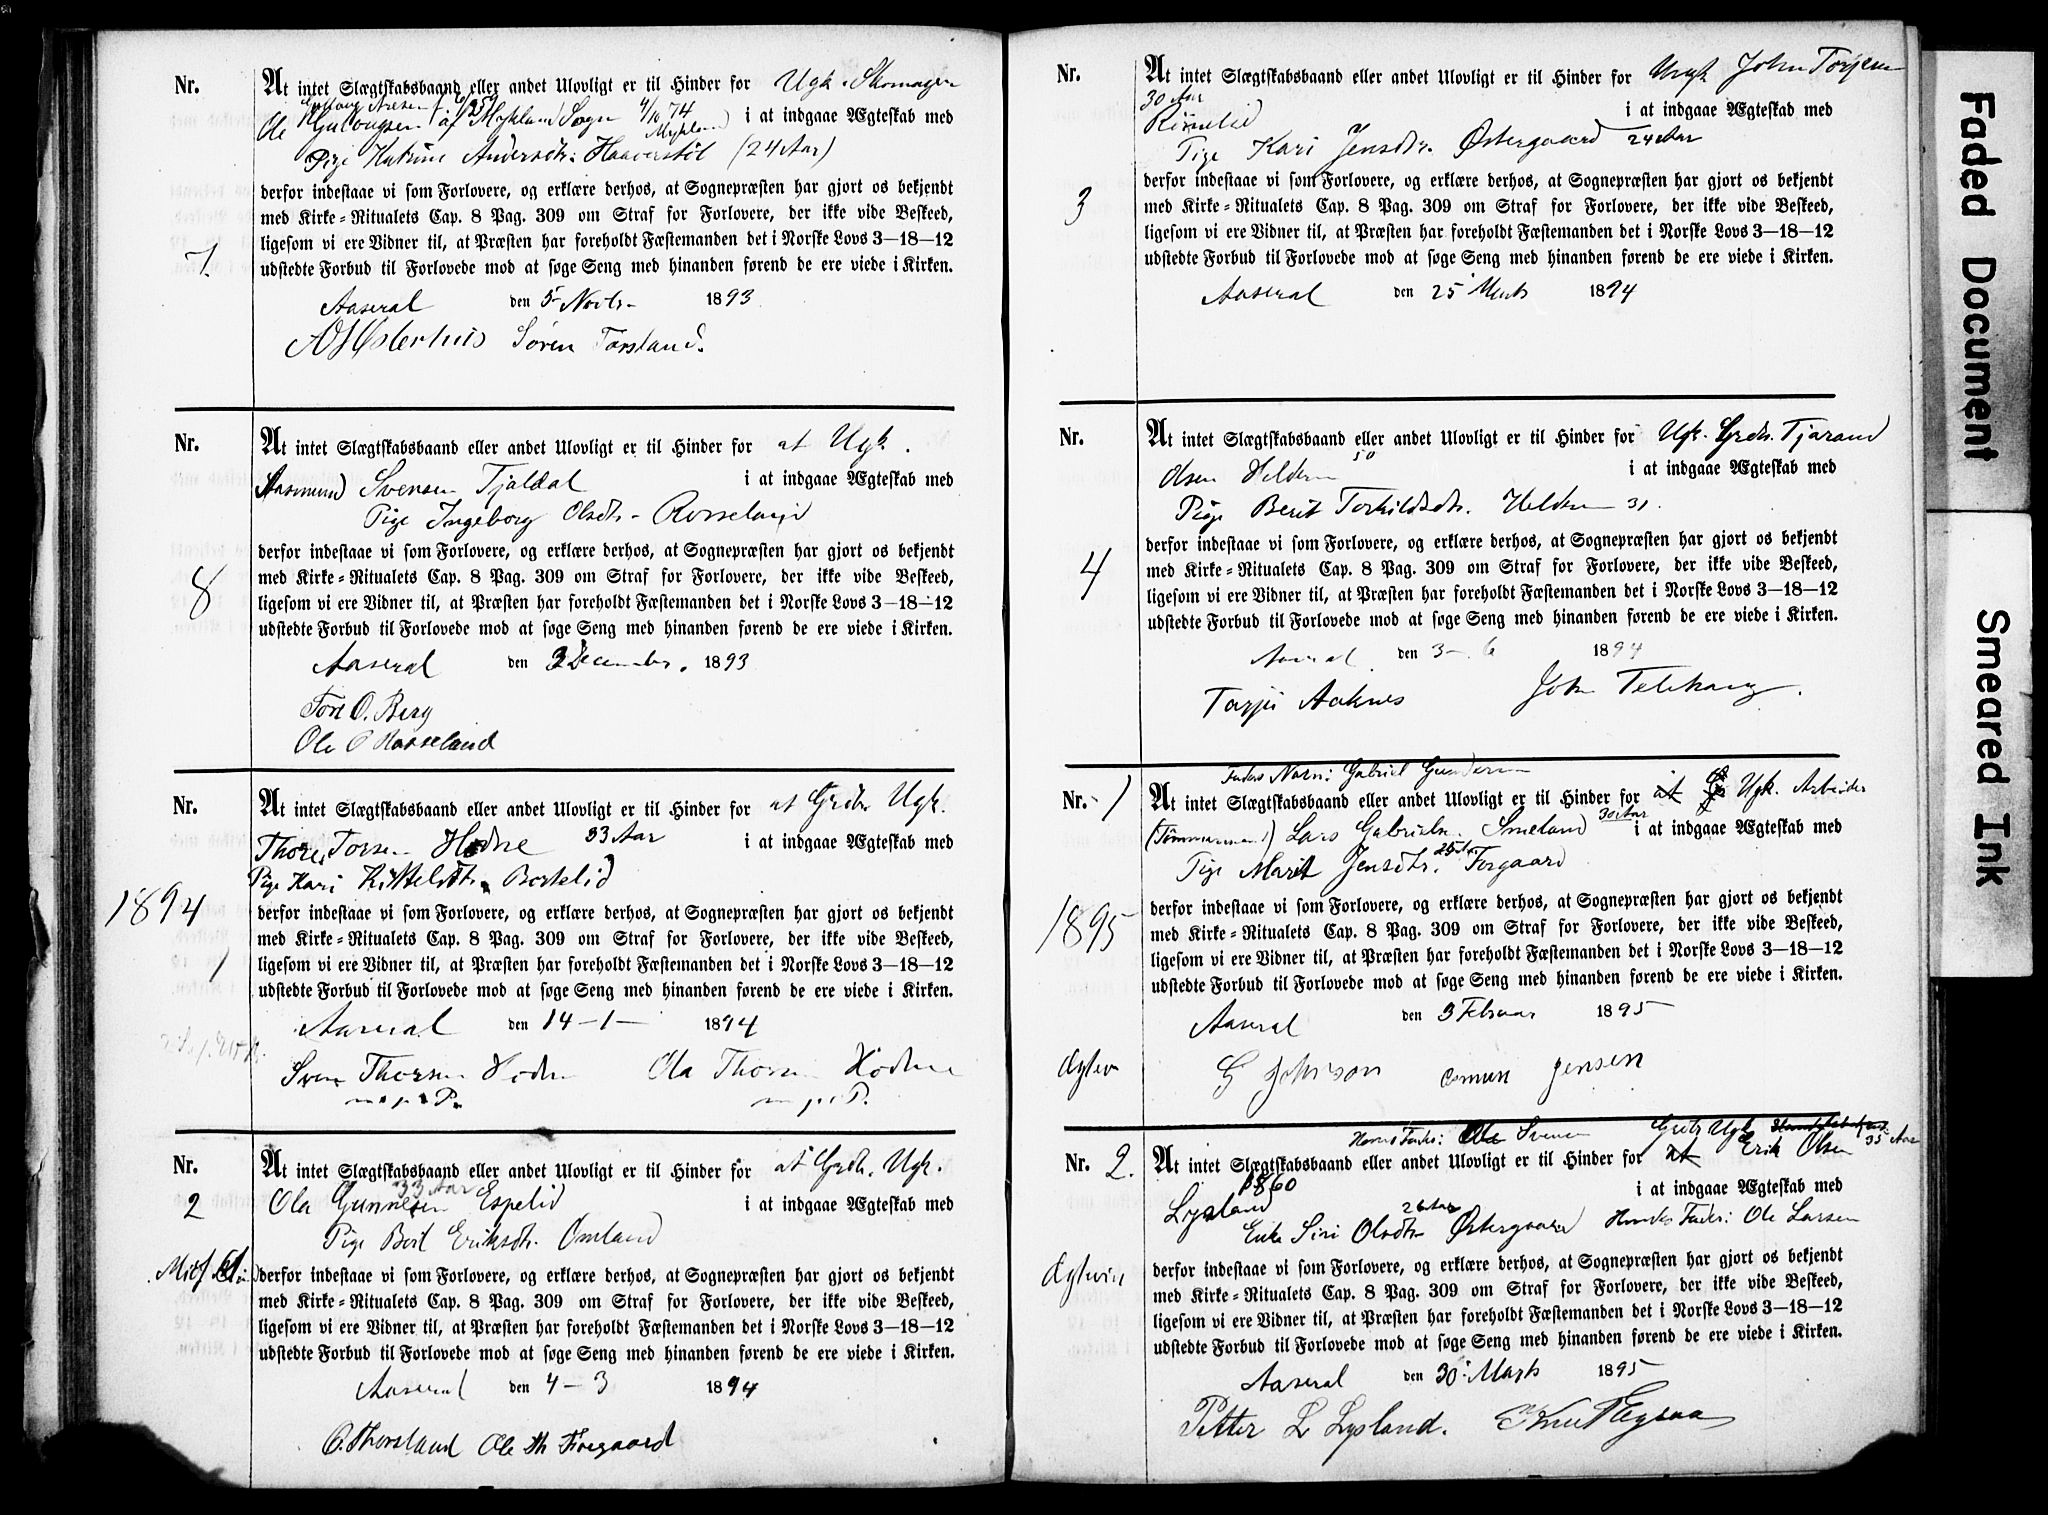 Nr.
At intet Slægtskabsbaand eller andet Ulovligt er til Hinder for Ugk. Skomager
Ole af Mykland Sogn 4/10 74 i at indgaae Ægteskab med
Mykland
Pige Andersdtr. Haaverstöl (24 Aar)
derfor indestaae vi som Forlovere, og erklære derhos, at Sognepræsten har gjort os bekjendt
med Kirke-Ritualets Cap. 8 Pag. 309 om Straf for Forlovere, der ikke vide Beskeed,
7.
ligesom vi ere Vidner til, at Præsten har foreholdt Fæstemanden det i Norske Lovs 3—18—12
udstedte Forbud til Forlovede mod at søge Seng med hinanden førend de ere viede i Kirken.
Aaseral den 5 Novbr 1893
Søren Forsland.
Nr.
At intet Slægtskabsbaand eller andet Ulovligt er til Hinder for at Ugk.
Aasmund Svensen Tjaldal i at indgaae Ægteskab med
Pige Ingeborg Olsdtr. Rosseland
derfor indestaae vi som Forlovere, og erklære derhos, at Sognepræsten har gjort os bekjendt
8
med Kirke-Ritualets Cap. 8 Pag. 309 om Straf for Forlovere, der ikke vide Beskeed,
ligesom vi ere Vidner til, at Præsten har foreholdt Fæstemanden det i Norske Lovs 3—18—12
udstedte Forbud til Forlovede mod at søge Seng med hinanden førend de ere viede i Kirken.
Aaseral den 3 December. 1893
Tore O. Berg
Ole O Rosseland
Nr.
At intet Slægtskabsbaand eller andet Ulovligt er til Hinder for at Grdbr. Ugk.
Thore Torsen Hodne 33 Aar i at indgaae Ægteskab med
Pige Kari Kittelsdtr. Bortelid
1894
derfor indestaae vi som Forlovere, og erklære derhos, at Sognepræsten har gjort os bekjendt
med Kirke-Ritualets Cap. 8 Pag. 309 om Straf for Forlovere, der ikke vide Beskeed,
1
ligesom vi ere Vidner til, at Præsten har foreholdt Fæstemanden det i Norske Lovs 3—18—12
udstedte Forbud til Forlovede mod at søge Seng med hinanden førend de ere viede i Kirken.
Aaseral den 14-1- 1894
Sven Thorsen Hodne Ola Thorsen Hodne
m. p. P. m. p. P.
Nr.
At intet Slægtskabsbaand eller andet Ulovligt er til Hinder for at Grdbr. Ugk.
2
33 Aar
Ola Gunnesen Espelid i at indgaae Ægteskab med
Pige Berit Eriksdtr. Omland
derfor indestaae vi som Forlovere, og erklære derhos, at Sognepræsten har gjort os bekjendt
med Kirke-Ritualets Cap. 8 Pag. 309 om Straf for Forlovere, der ikke vide Beskeed,
ligesom vi ere Vidner til, at Præsten har foreholdt Fæstemanden det i Norske Lovs 3—18—12
udstedte Forbud til Forlovede mod at søge Seng med hinanden førend de ere viede i Kirken.
Aaseral den 4-3 1894
O. Thorsland Ole Th Foregaard
Nr.
At intet Slægtskabsbaand eller andet Ulovligt er til Hinder for Ungk John Torjesen
30 Aar
i at indgaae Ægteskab med
Pige Kari Jensdtr. Østergaard 24 Aar
derfor indestaae vi som Forlovere, og erklære derhos, at Sognepræsten har gjort os bekjendt
3
med Kirke-Ritualets Cap. 8 Pag. 309 om Straf for Forlovere, der ikke vide Beskeed,
ligesom vi ere Vidner til, at Præsten har foreholdt Fæstemanden det i Norske Lovs 3—18—12
udstedte Forbud til Forlovede mod at søge Seng med hinanden førend de ere viede i Kirken.
Aaseral den 25 Marts 1894
Nr.
At intet Slægtskabsbaand eller andet Ulovligt er til Hinder for Ugk. Grdbr. Tjarand
50
Olsen i at indgaae Ægteskab med
Pige Berit Torkildsdtr. 31.
derfor indestaae vi som Forlovere, og erklære derhos, at Sognepræsten har gjort os bekjendt
4
med Kirke-Ritualets Cap. 8 Pag. 309 om Straf for Forlovere, der ikke vide Beskeed,
ligesom vi ere Vidner til, at Præsten har foreholdt Fæstemanden det i Norske Lovs 3—18—12
udstedte Forbud til Forlovede mod at søge Seng med hinanden førend de ere viede i Kirken.
Aaseral den 3-6 1894
Tarjei Aaknes John Telhaug.
Faders Navn: Gabriel Gundersen
Nr. 1
At intet Slægtskabsbaand eller andet Ulovligt er til Hinder for at Ugk. Arbeider
30 Aar
(Tömmermand) Lars Gabrielsen Smeland i at indgaae Ægteskab med
Pige Marit Jensdtr. Forgaard
1895
derfor indestaae vi som Forlovere, og erklære derhos, at Sognepræsten har gjort os bekjendt
med Kirke-Ritualets Cap. 8 Pag. 309 om Straf for Forlovere, der ikke vide Beskeed,
ligesom vi ere Vidner til, at Præsten har foreholdt Fæstemanden det i Norske Lovs 3—18—12
udstedte Forbud til Forlovede mod at søge Seng med hinanden førend de ere viede i Kirken.
Aaseral den 3 Februar 1895
G Johnson jensen
Hans Fader: Ole Svensen Ugk
Nr. 2.
At intet Slægtskabsbaand eller andet Ulovligt er til Hinder for at Erik Olsen 35 Aar
1860
Lysland i at indgaae Ægteskab med
26 Aar
Enke Siri Olsdtr Østergaard Hendes Fader: Ole Larsen
derfor indestaae vi som Forlovere, og erklære derhos, at Sognepræsten har gjort os bekjendt
med Kirke-Ritualets Cap. 8 Pag. 309 om Straf for Forlovere, der ikke vide Beskeed,
ligesom vi ere Vidner til, at Præsten har foreholdt Fæstemanden det i Norske Lovs 3—18—12
udstedte Forbud til Forlovede mod at søge Seng med hinanden førend de ere viede i Kirken.
Aaseral den 30 Marts 1895
Petter L Lysland.
Faded Document
Smeared Ink